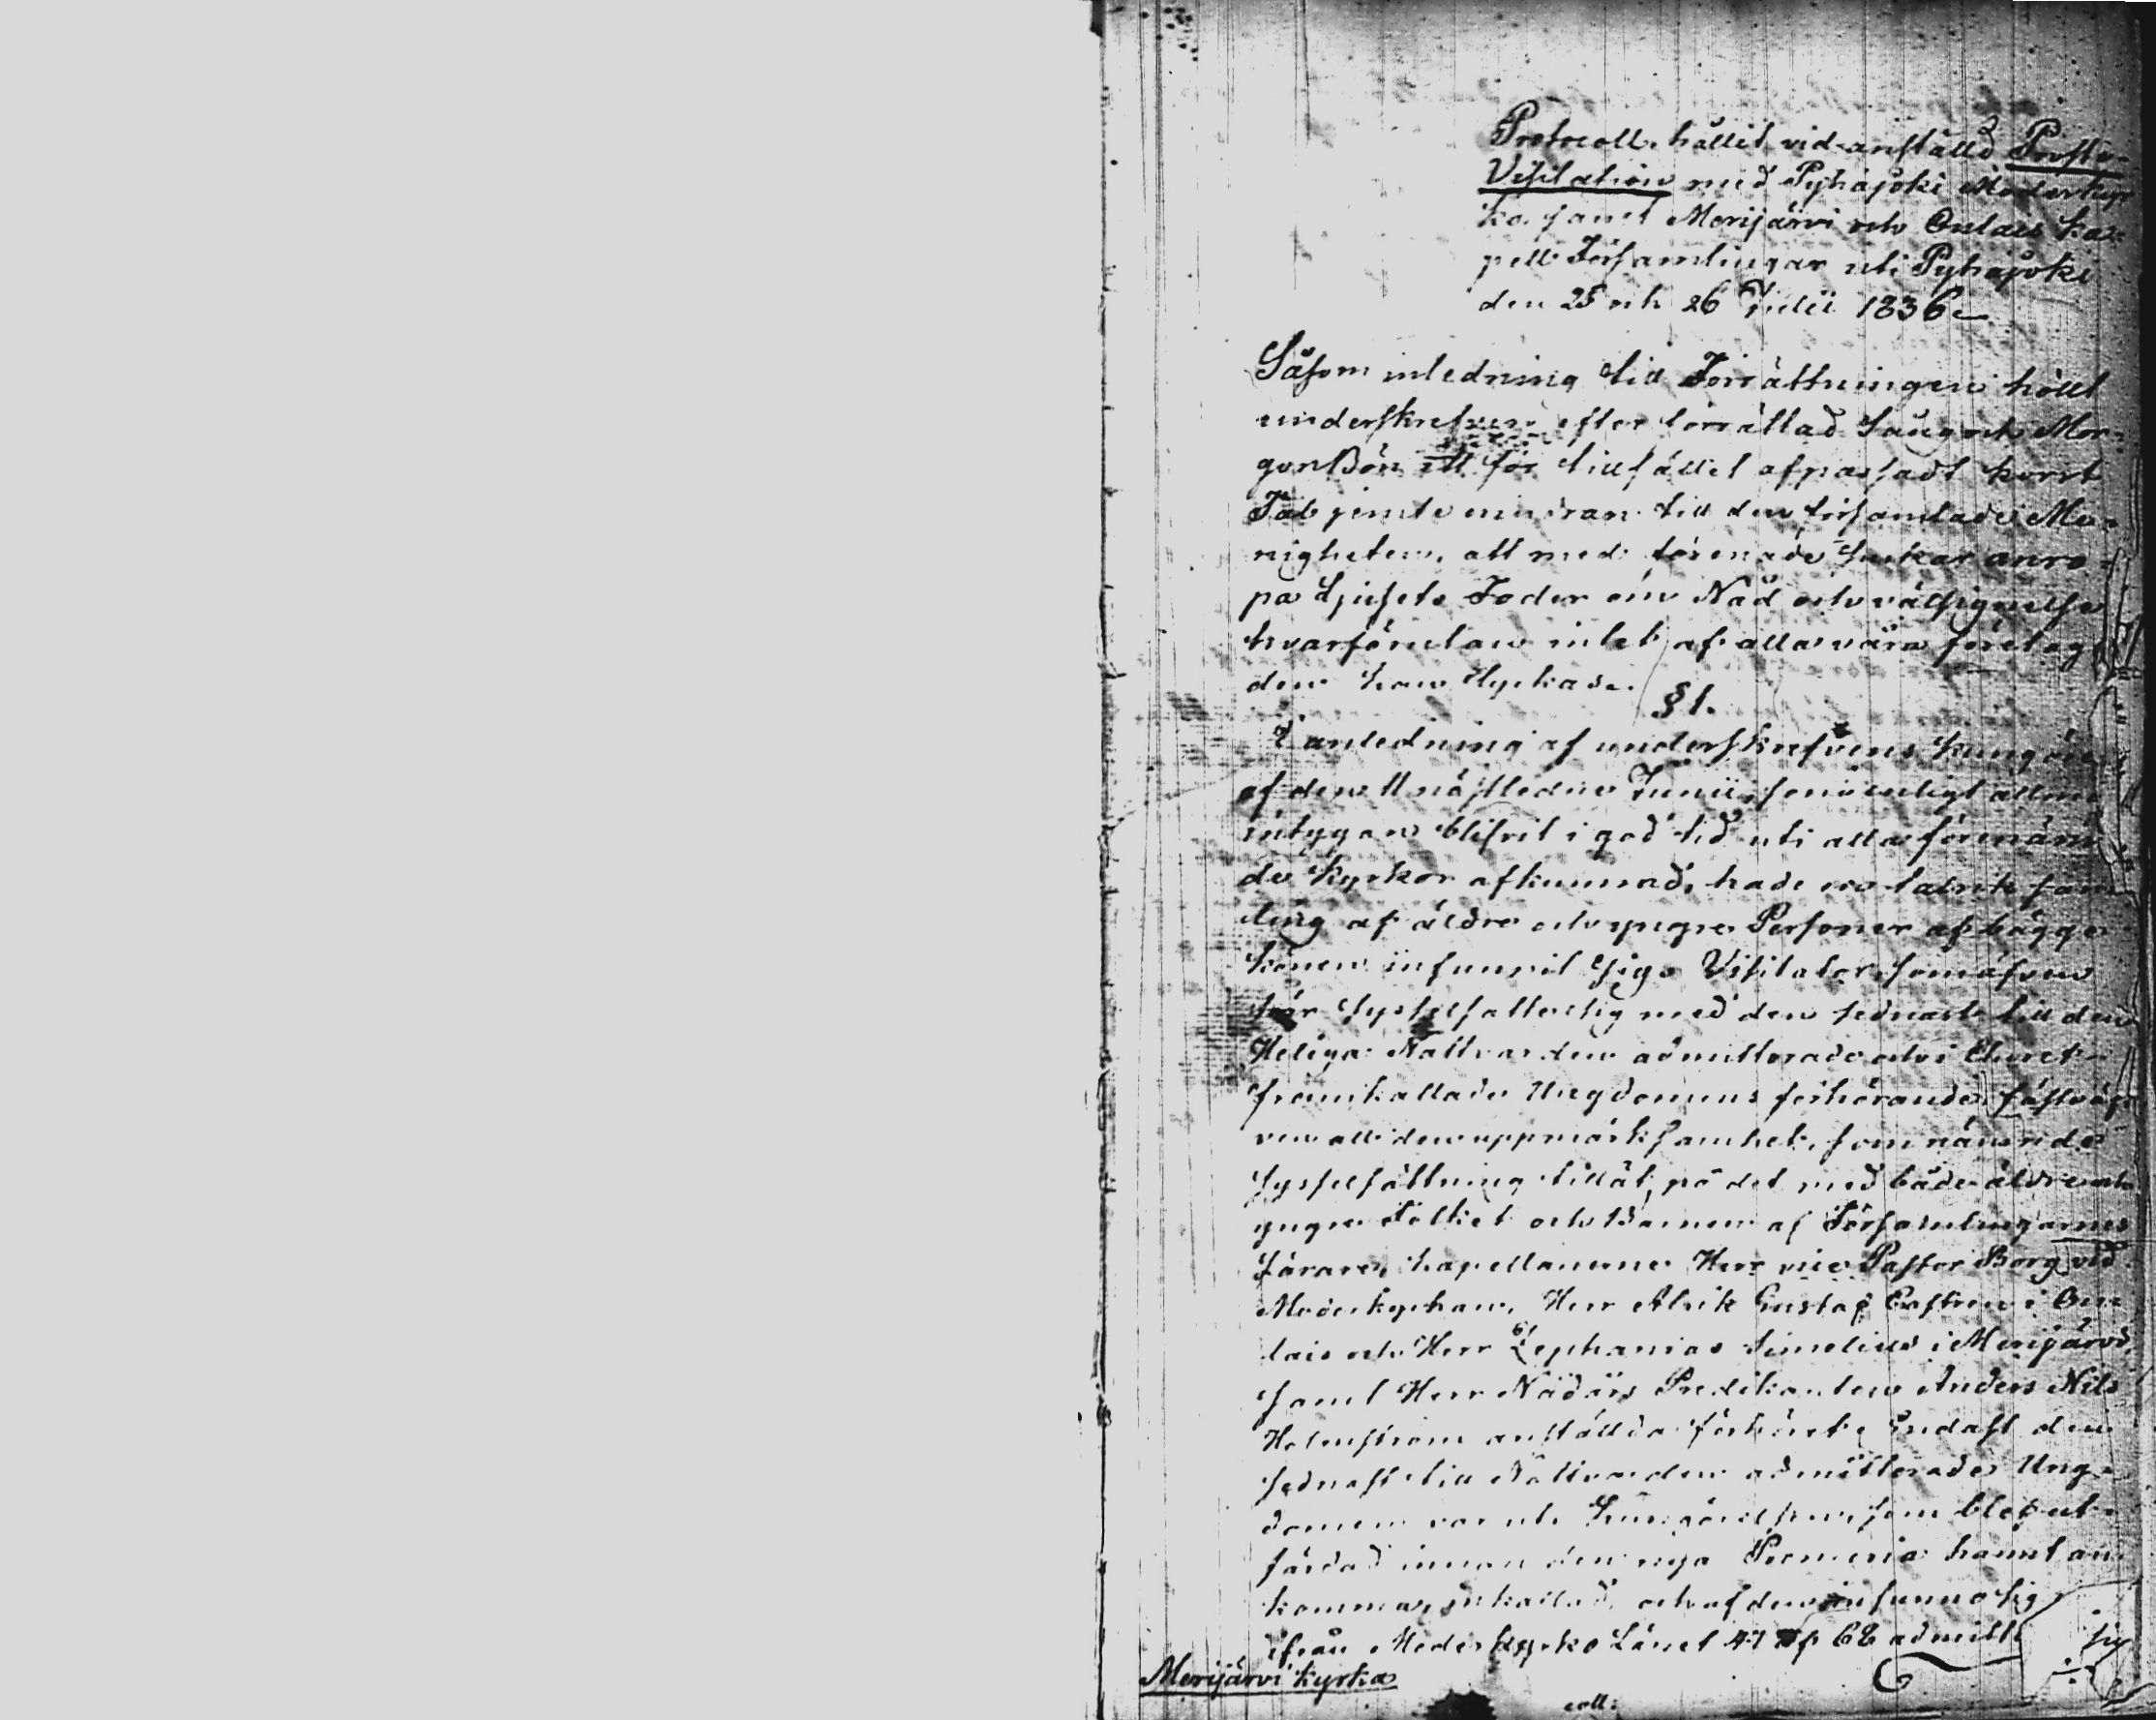 Protocoll, hållit vid anställd Prosts-
Visitation med Pyhäjoki Moderkyr
ka samt Merijärvi och Oulais Ka-
pell Församlingar uti Pyhäjoki
den 25 och 26 Julii 1836
Såsom inledning till Förrättningen höllt
underskrefven efter förrättad Sång och Mor-
gonBön ett för tillfället afpassadt kort
Tal jemte erindran till den församlade Me-
nigheten, att med förenade Suckar anro-
pa Ljusets Fader om Nåd och välsignelse
hvarförutan intet af alla våra företag
den kan lyckas.
§ 1.
I anledning af underskrefvens Kungör
af den 11 nästledne Junii, som enligt allmä
intygan blifvit i god tid uti alla förenämn
de Kyrkor afkunnad, hade en talrik sam
ling af äldre och yngre Personer af bägge
Könen infunnit sig. Visitator som äfven
här sysselsatte sig med den sednast till den
Heliga Nattvarden admitterade och i Choret
framkallade Ungdomens förhörande, fästade
all den uppmärksamhet, som nämnde
Sysselsättning tillät, på det med både äldre och
yngre Folket och Barnen af Församlingarnes
Lärare, Kapellanerne Herr vice Pastor Borg vid
Moderkyrkan, Herr Alrik Gustaf i Ou
lais och Herr Zephanias Simelius i Merijärvi,
samt Herr Nådårs Predikanten Anders Nils
Holmström anställda förhöret. Endast den
sednast till Nattvarden admitterade Ung-
domen var uti Kungörelsen som blef ut-
färdad innan den nya hunnit an
komma, inkallad, och af den infunno sig
ifrån Moderkyrko Länet 47 af 68 admitt
Merijärvi Kyrka
coll: